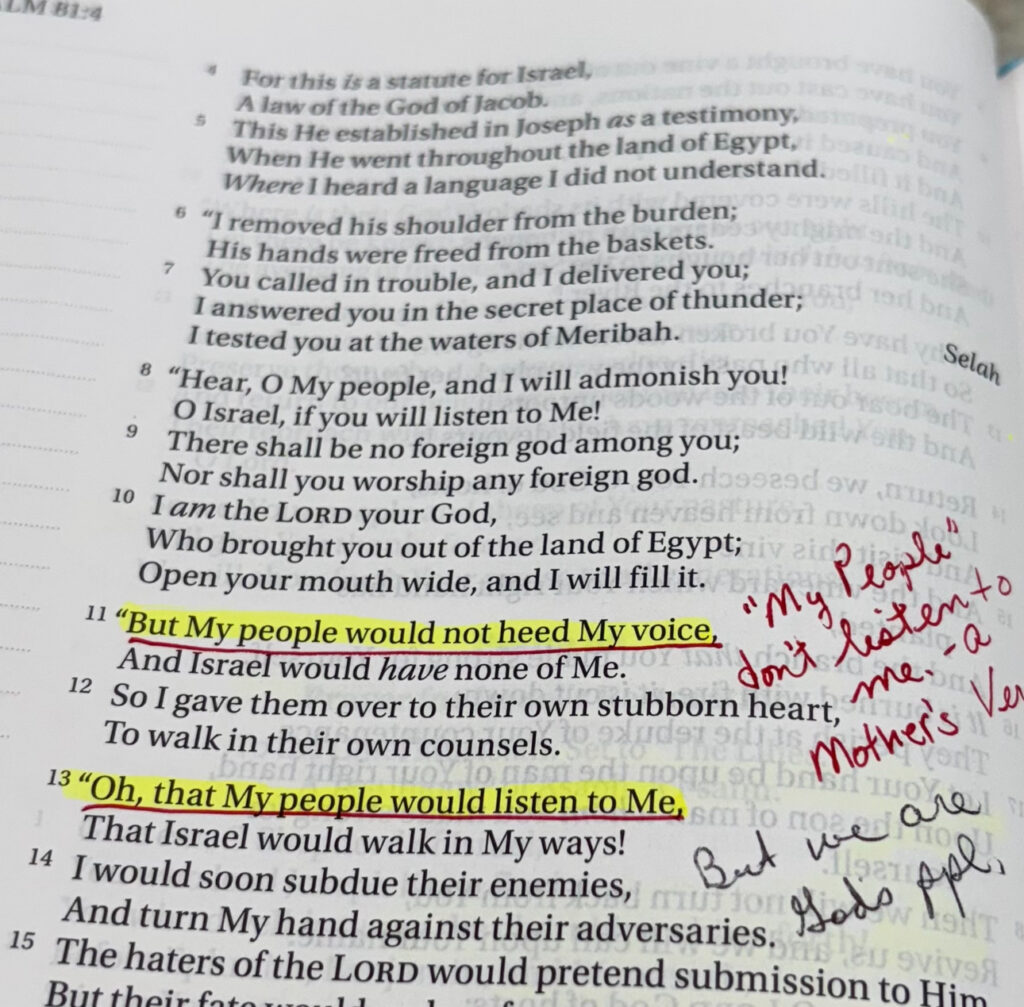 LM 81:4
4 For this is a statute for Israel,
A law of the God of Jacob.
5 This He established in Joseph as a testimony,
When He went throughout the land of Egypt,
Where I heard a language I did not understand.
6 “I removed his shoulder from the burden;
His hands were freed from the baskets.
7 You called in trouble, and I delivered you;
I answered you in the secret place of thunder;
I tested you at the waters of Meribah.
Selah
8 “Hear, O My people, and I will admonish you!
O Israel, if you will listen to Me!
9 There shall be no foreign god among you;
Nor shall you worship any foreign god.
10 I am the LORD your God,
Who brought you out of the land of Egypt;
Open your mouth wide, and I will fill it.
11 “But My people would not heed My voice,
And Israel would have none of Me.
12 So I gave them over to their own stubborn heart,
To walk in their own counsels.
13 “Oh, that My people would listen to Me,
That Israel would walk in My ways!
14 I would soon subdue their enemies,
And turn My hand against their adversaries.
15 The haters of the LORD would pretend submission to Him,
But their fate would
"My People"
don't listen to
me - a
Mother's Ve
But we are
Gods ppl,